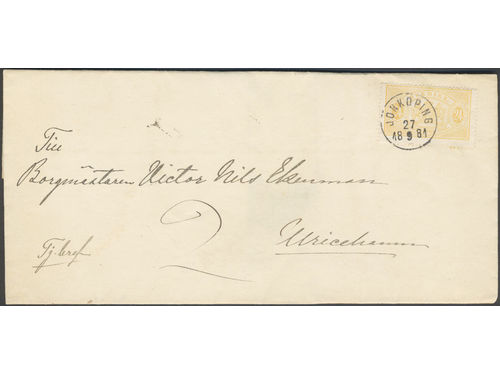 JÖNKÖPING
27
18 9 81
Till
Borgmästaren Victor Nils Ekenman
2
Ulricehamn
Tj.bref